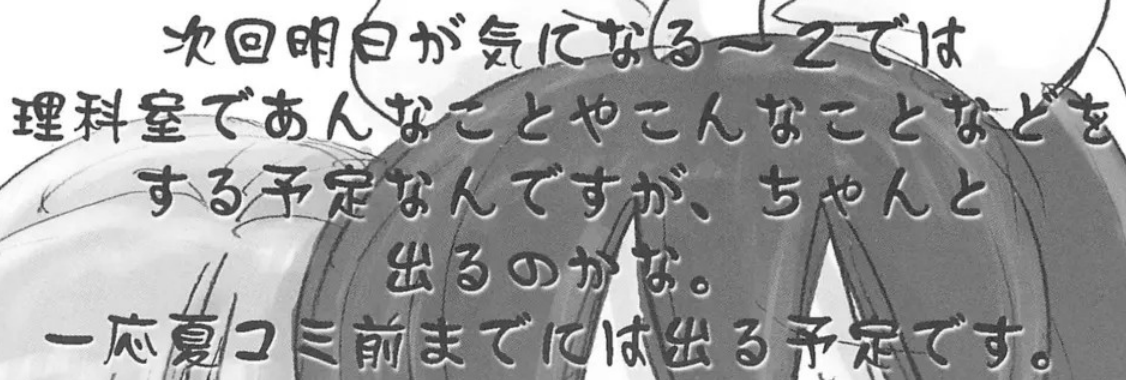 次回明日が気になる～2では
理科室であんなことやこんなことなどを
する予定なんですが、ちゃんと
出るのかな。
一応夏コミ前までには出る予定です。